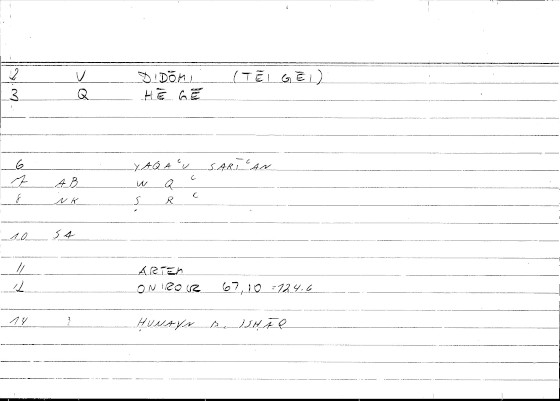 2 V DIDŌMI (TĒI GĒI)
3 Q HĒ GĒ
6 YAQAʿU SARĪʿAN
7 AB W Q ʿ
8 NK Ṣ R ʿ
10 SA
11 ARTEM
12 ONIROCR 67,10 = 124.6
14 ḤUNAYN B. ISḤĀQ